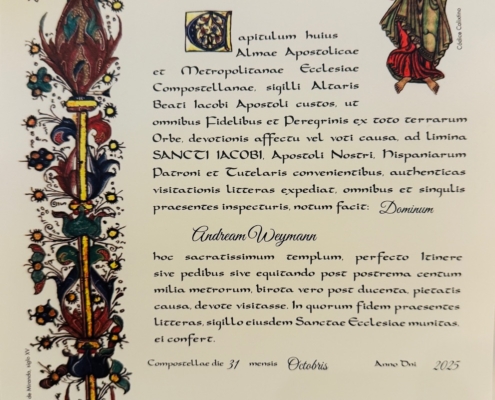 Capitulum huius
Almae Apostolicae
et Metropolitanae Ecclesiae
Compostellanae, sigilli Altaris
Beati Iacobi Apostoli custos, ut
omnibus Fidelibus et Peregrinis ex toto terrarum
Orbe, devotionis affectu vel voti causa, ad limina
SANCTI IACOBI, Apostoli Nostri, Hispaniarum
Patroni et Tutelaris convenientibus, authenticas
visitationis litteras expediat, omnibus et singulis
praesentes inspecturis, notum facit: Dominum
Andream Weymann
hoc sacratissimum templum, perfecto Itinere
sive pedibus sive equitando post postrema centum
milia metrorum, birota vero post ducenta, pietatis
causa, devote visitasse. In quorum fidem praesentes
litteras, sigillo eiusdem Sanctae Ecclesiae munitas,
ei confert.
Compostellae die 31 mensis Octobris Anno Dni 2025
Códice Calixtino
de Miranda, siglo XV